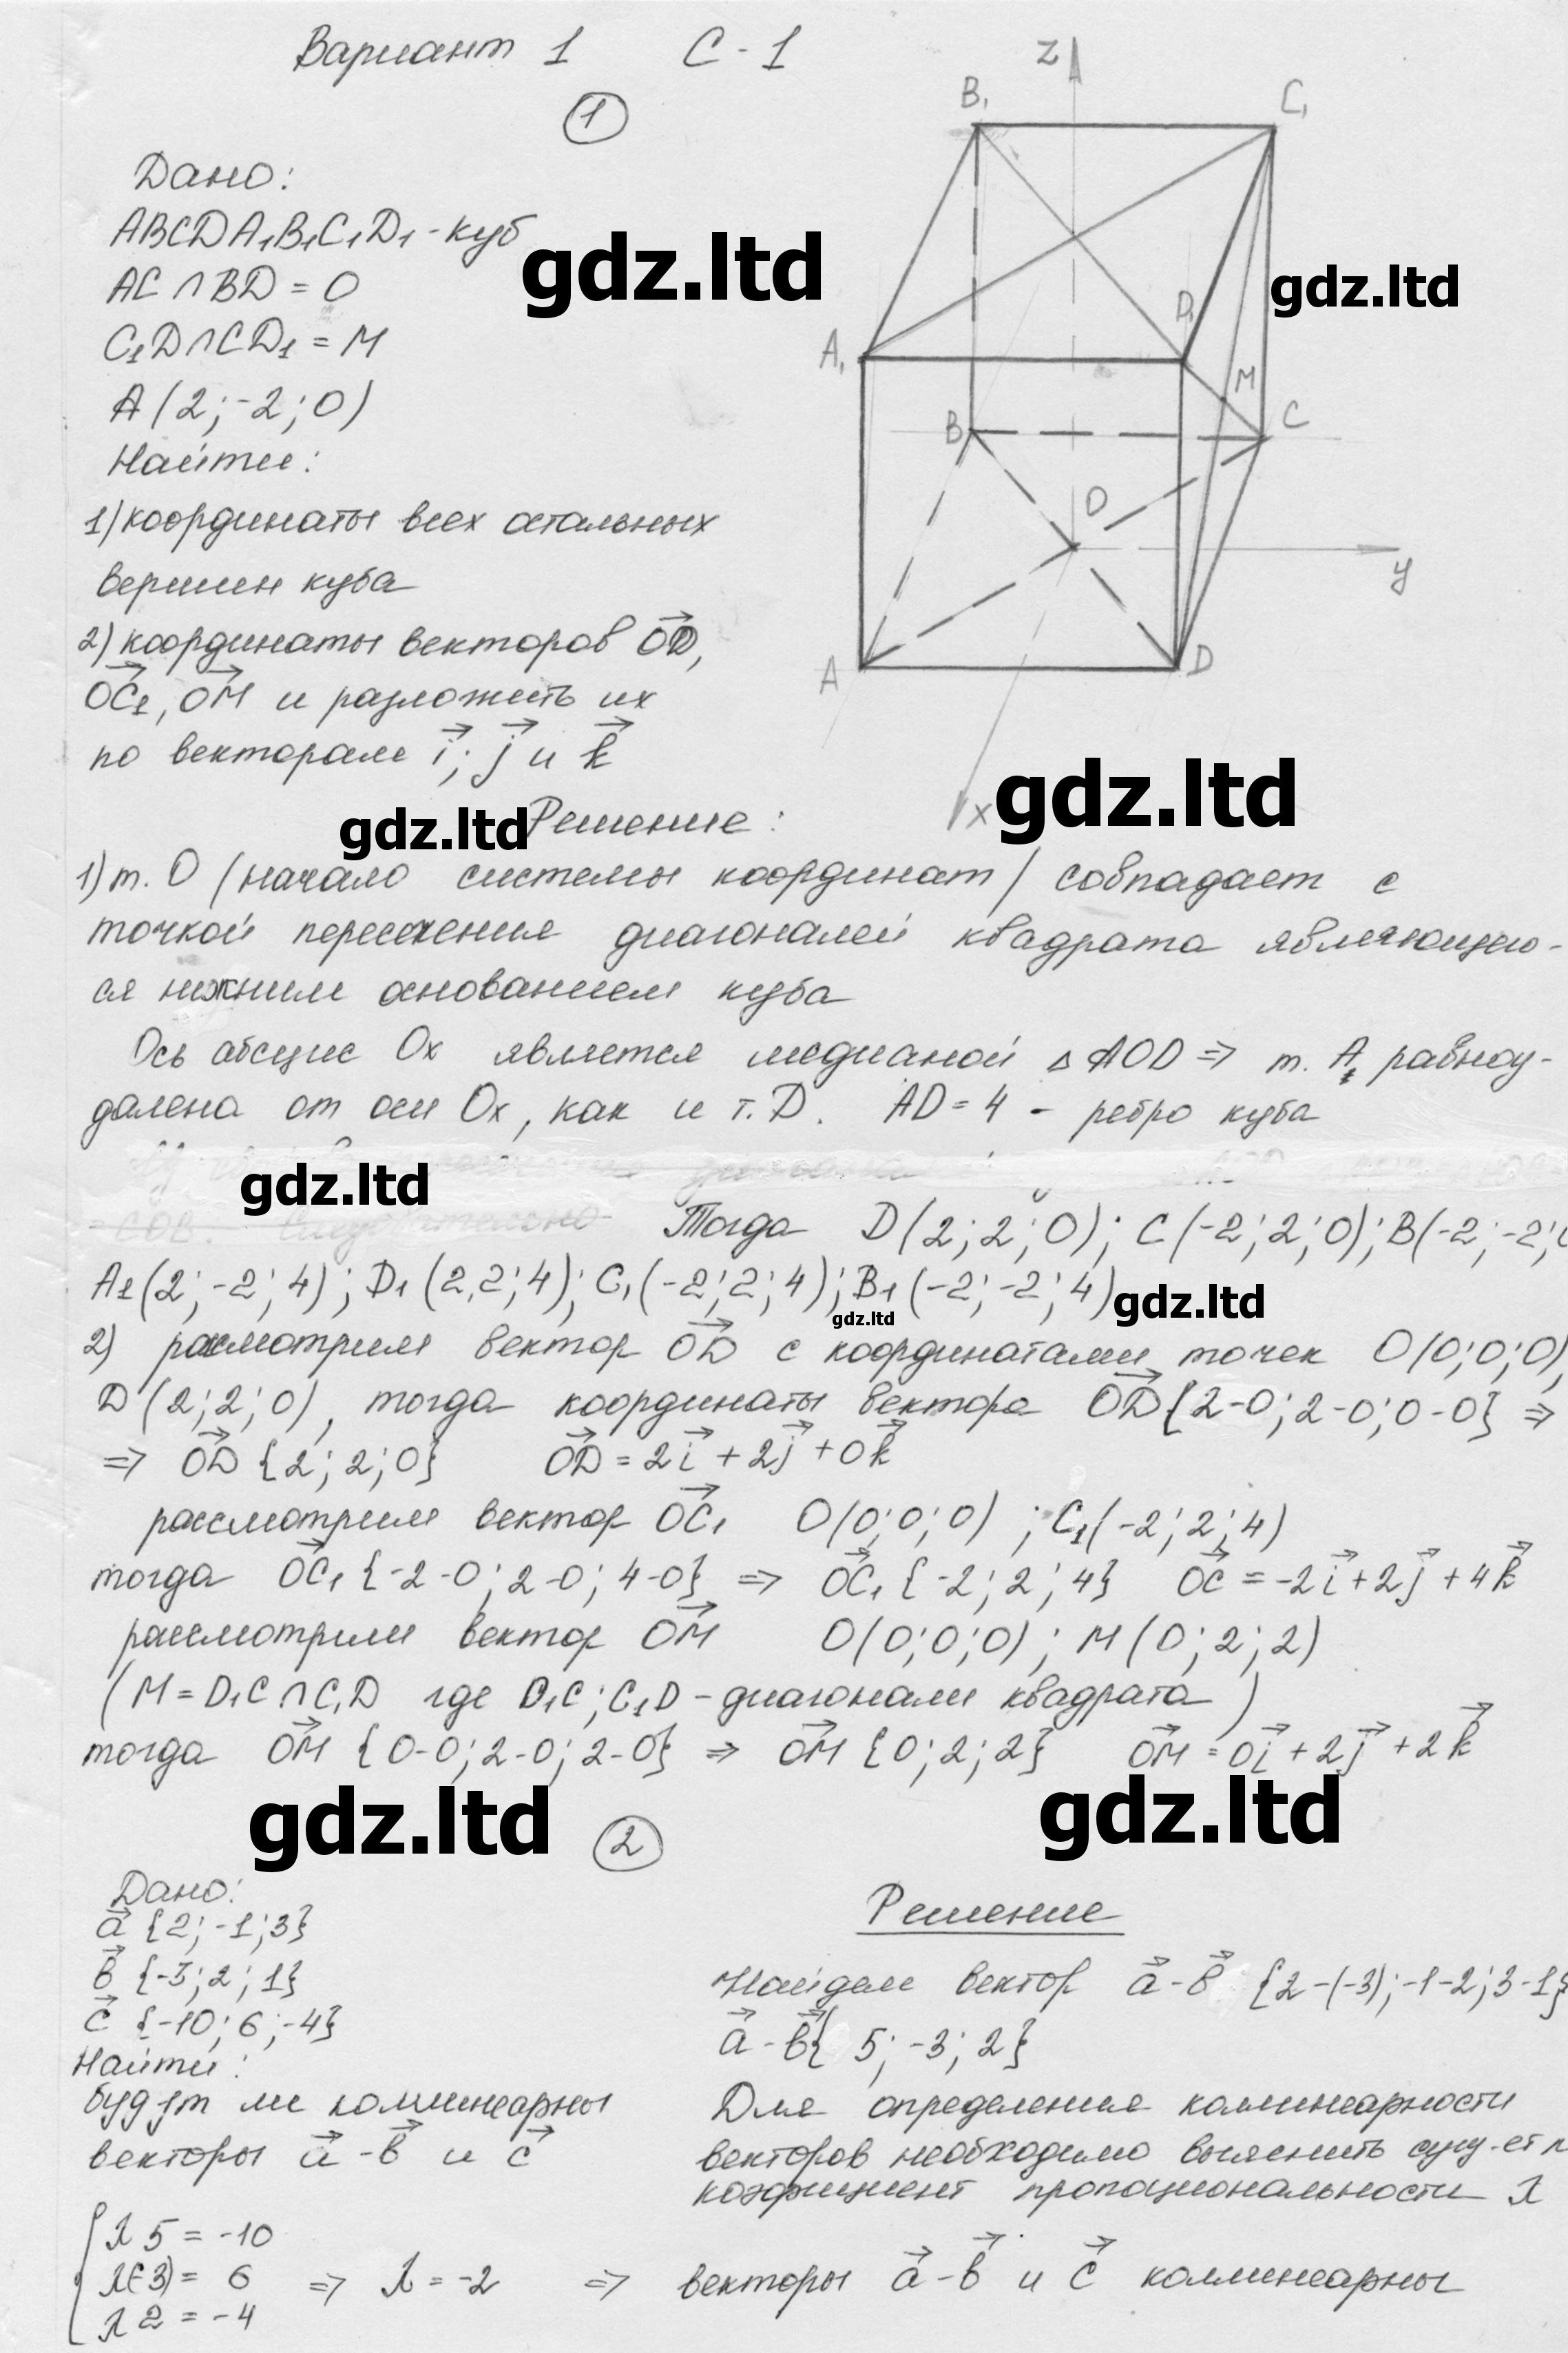 Вариант 1 С-1
1
z
B₁ C₁
Дано:
ABCDA₁B₁C₁D₁ - куб
gdz.ltd
AC ∩ BD = O
gdz.ltd
C₁D ∩ CD₁ = M
A₁ D₁
A (2; -2; 0)
M
B C
Найти:
1) координаты всех остальных
O
вершин куба
y
2) координаты векторов OD⃗,
A D
OC₁⃗, OM⃗ и разложить их
по векторам i⃗; j⃗ и k⃗
x
gdz.ltd
gdz.ltd
Решение:
1) т. O (начало системы координат) совпадает с
точкой пересечения диагоналей квадрата являющего-
ся нижним основанием куба
Ось абсцис Ox является медианой △ AOD ⇒ т. A равноу-
далена от оси Ox, как и т. D. AD = 4 - ребро куба
gdz.ltd
Тогда D(2; 2; 0); C(-2; 2; 0); B(-2; -2;
A₁(2; -2; 4); D₁(2,2; 4); C₁(-2; 2; 4); B₁(-2; -2; 4)
gdz.ltd
gdz.ltd
2) рассмотрим вектор OD⃗ с координатами точек O(0; 0; 0),
D(2; 2; 0), тогда координаты вектора OD⃗{2-0; 2-0; 0-0} ⇒
⇒ OD⃗ {2; 2; 0} OD⃗ = 2i⃗ + 2j⃗ + 0k⃗
рассмотрим вектор OC₁⃗ O(0; 0; 0) ; C₁(-2; 2; 4)
тогда OC₁⃗ {-2-0; 2-0; 4-0} ⇒ OC₁⃗ {-2; 2; 4} OC⃗ = -2i⃗ + 2j⃗ + 4k⃗
рассмотрим вектор OM⃗ O(0; 0; 0); M(0; 2; 2)
(M = D₁C ∩ C₁D где D₁C; C₁D - диагонали квадрата)
тогда OM⃗ {0-0; 2-0; 2-0} ⇒ OM⃗ {0; 2; 2} OM⃗ = 0i⃗ + 2j⃗ + 2k⃗
gdz.ltd
gdz.ltd
2
Дано:
a⃗ {2; -1; 3}
Решение
b⃗ {-3; 2; 1}
Найдем вектор a⃗ - b⃗ {2-(-3); -1-2; 3-1}
c⃗ {-10; 6; -4}
a⃗ - b⃗{ 5; -3; 2}
Найти:
будут ли коллинеарны
Для определения коллинеарности
векторы a⃗ - b⃗ и c⃗
векторов необходимо выяснить сущ-ет
коэффициент пропоциональности λ
λ 5 = -10
λ(-3) = 6 ⇒ λ = -2 ⇒ векторы a⃗ - b⃗ и c⃗ коллинеарны
λ 2 = -4